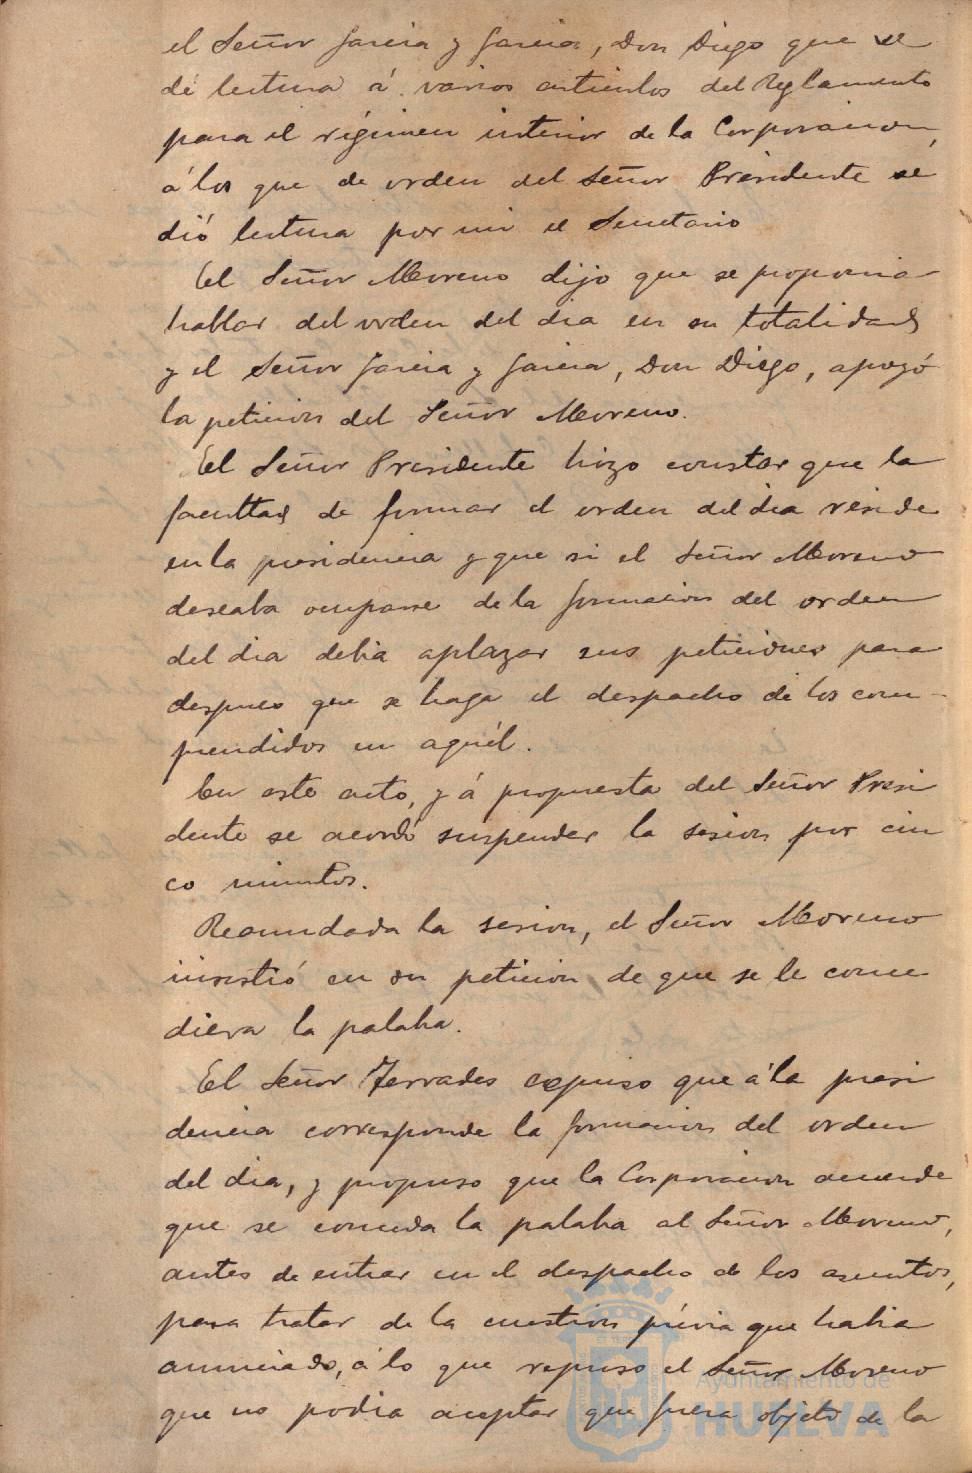 el Señor Garcia y Garcia, Don Diego que se
dé lectura á varios artículos del Reglamento
para el régimen interior de la Corporacion,
á los que de orden del Señor Presidente se
dió lectura por mi el Secretario
El Señor Moreno dijo que se proponia
hablar del orden del dia en su totalidad
y el Señor Garcia y Garcia, Don Diego, apoyó
la peticion del Señor Moreno.
El Señor Presidente hizo constar que la
facultad de formar el orden del dia reside
en la presidencia y que si el Señor Moreno
deseaba ocuparse de la formacion del orden
del dia debia aplazar sus peticiones para
despues que se haga el despacho de los com-
prendidos en aquél.
En este acto, y á propuesta del Señor Presi
dente se acordó suspender la sesion por cin
co minutos.
Reanudada la sesion, el Señor Moreno
insistió en su peticion de que se le conce
diera la palabra.
El Señor Terrades expuso que á la presi
dencia corresponde la formacion del orden
del dia, y propuso que la Corporacion acuerde
que se conceda la palabra al Señor Moreno,
antes de entrar en el despacho de los asuntos,
para tratar de la cuestion prévia que habia
anunciado, á lo que repuso el Señor Moreno
que no podia aceptar que fuera objeto de la
Ayuntamiento de
HUELVA